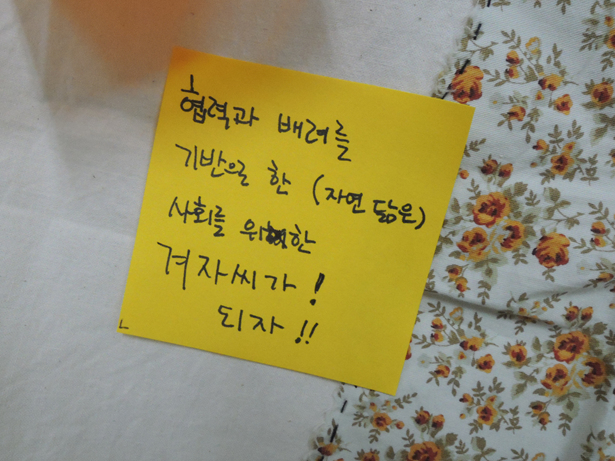 협력과 배려를
기반으로 한 (자연 닮은)
사회를 위한
겨자씨가!
되자!!